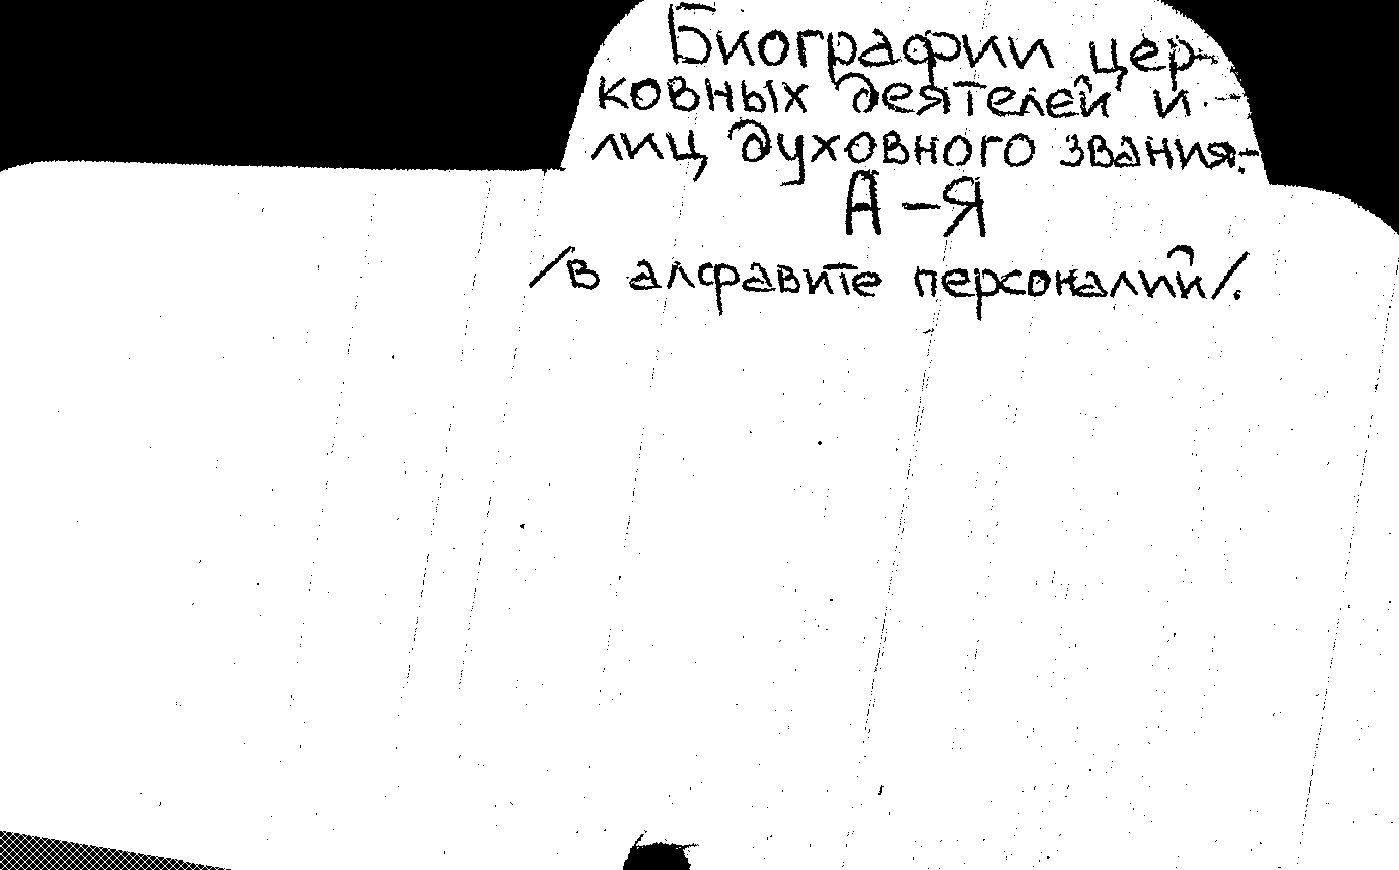 Биографии цер-
ковных деятелей и
лиц духовного звания.
А – Я
/в алфавите персоналий/.